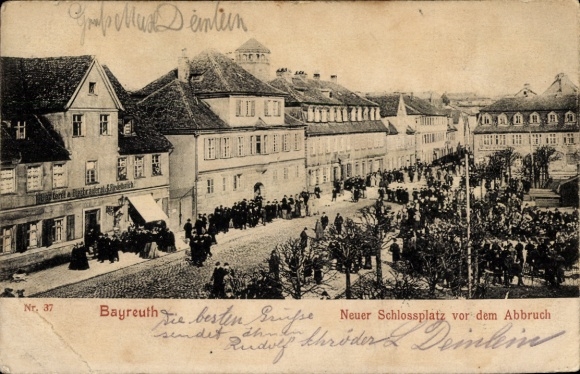 Deinlein
Nr. 37
Bayreuth
Neuer Schlossplatz vor dem Abbruch
Die besten Grüße
sendet
Rudolf Schröder L Deinlein